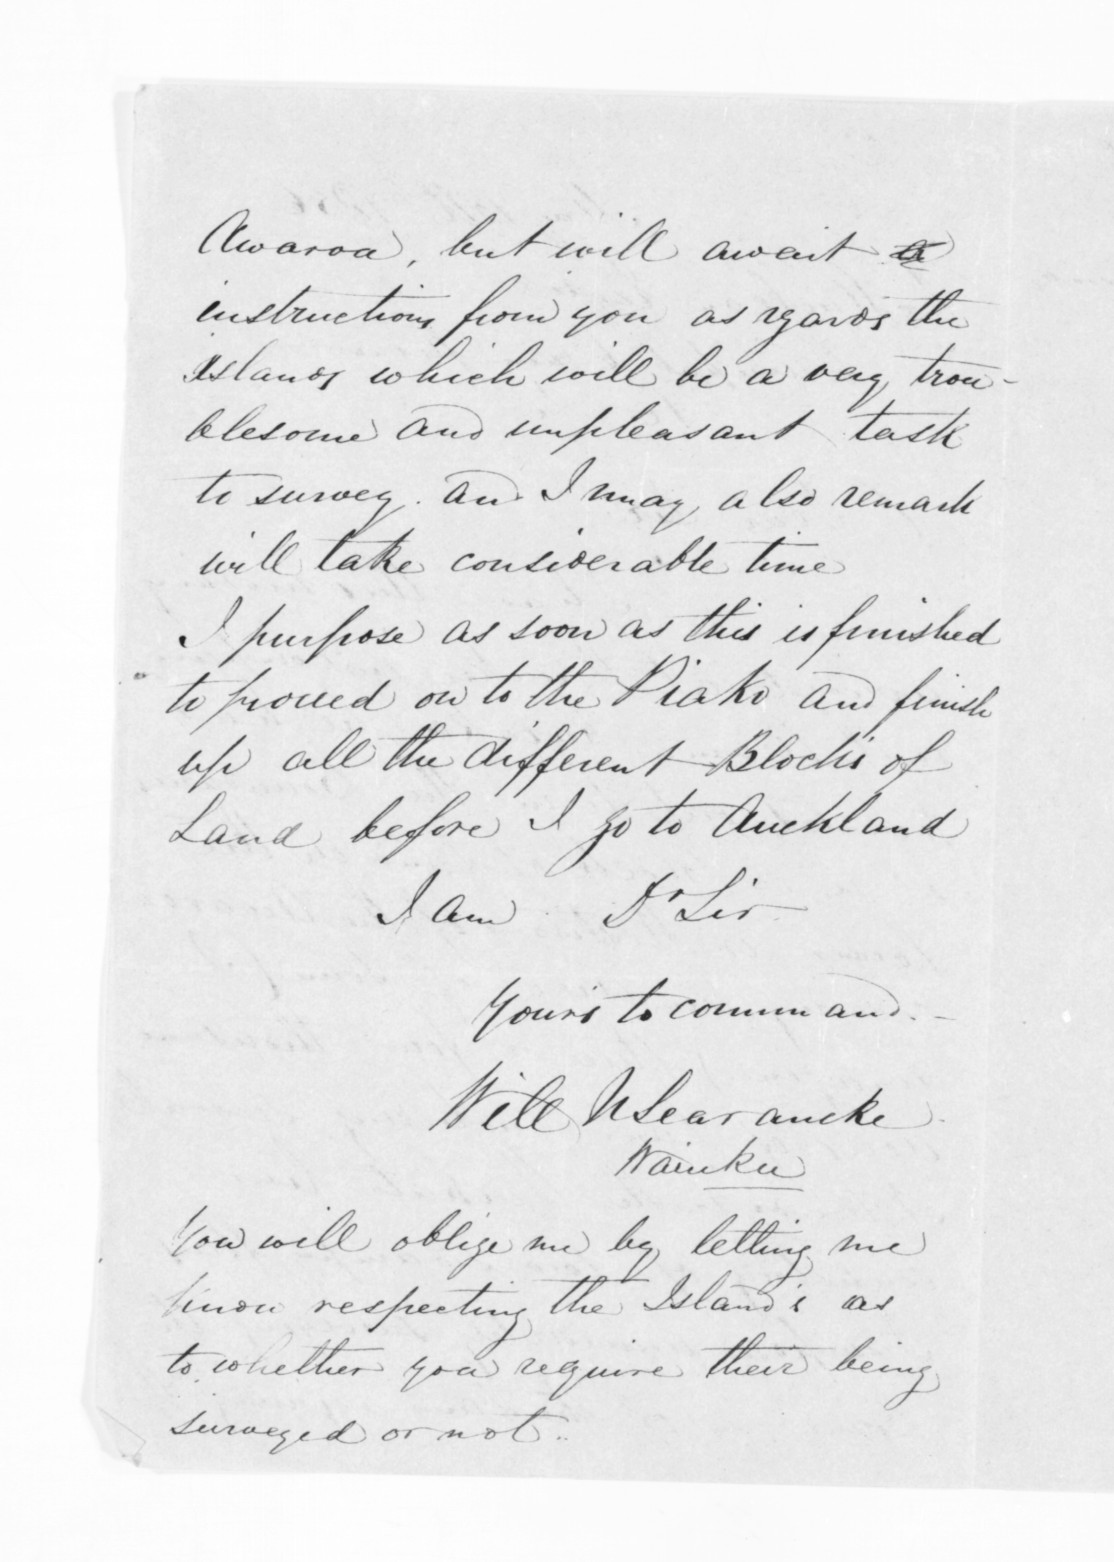 Awaroa, but will await
instructions from you as regards the
Islands which will be a very trou-
blesome and unpleasant task
to survey. and I may also remark
will take considerable time
I purpose as soon as this is finished
to proceed on to the Piako and finish
up all the different Blocks of
Land before I go to Auckland
I am Dr Sir
Yours to command.-
Will N Searancke
Waiuku
You will oblige me by letting me
know respecting the Islands as
to whether you require their being
surveyed or not.